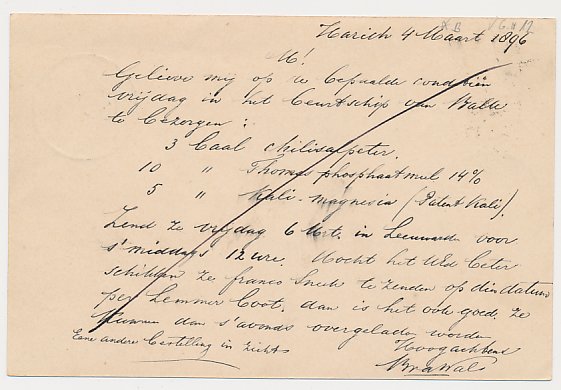 Harich 4 Maart 1896
M!
Gelieve mij op te bepaalde condition
vrijdag in het beurtschip van Balk
te bezorgen:
3 baal chilisalpeter.
10 " Thomas phosphaatmeel 14%
5 " Kali-magnesia (Patent Kali).
Zend ze vrijdag 6 Mrt. in Leeuwarden voor
s'middags 12 ure. Mocht het UEd beter
schikken ze franco Sneek te zenden op dien datum
per Lemmer boot, dan is het ook goed. Ze
kunnen dan s'avonds overgeladen worden
Hoogachtend
Eene andere bestelling in zicht